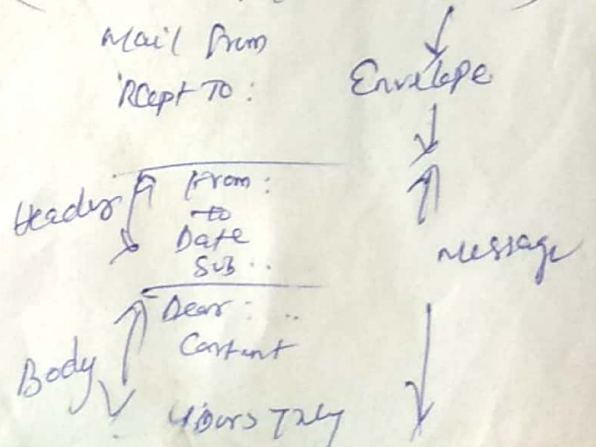 Mail From
RCept TO :
Envelope
Header
From :
to
Date
Sub ..
Message
Dear : ..
Content
Body